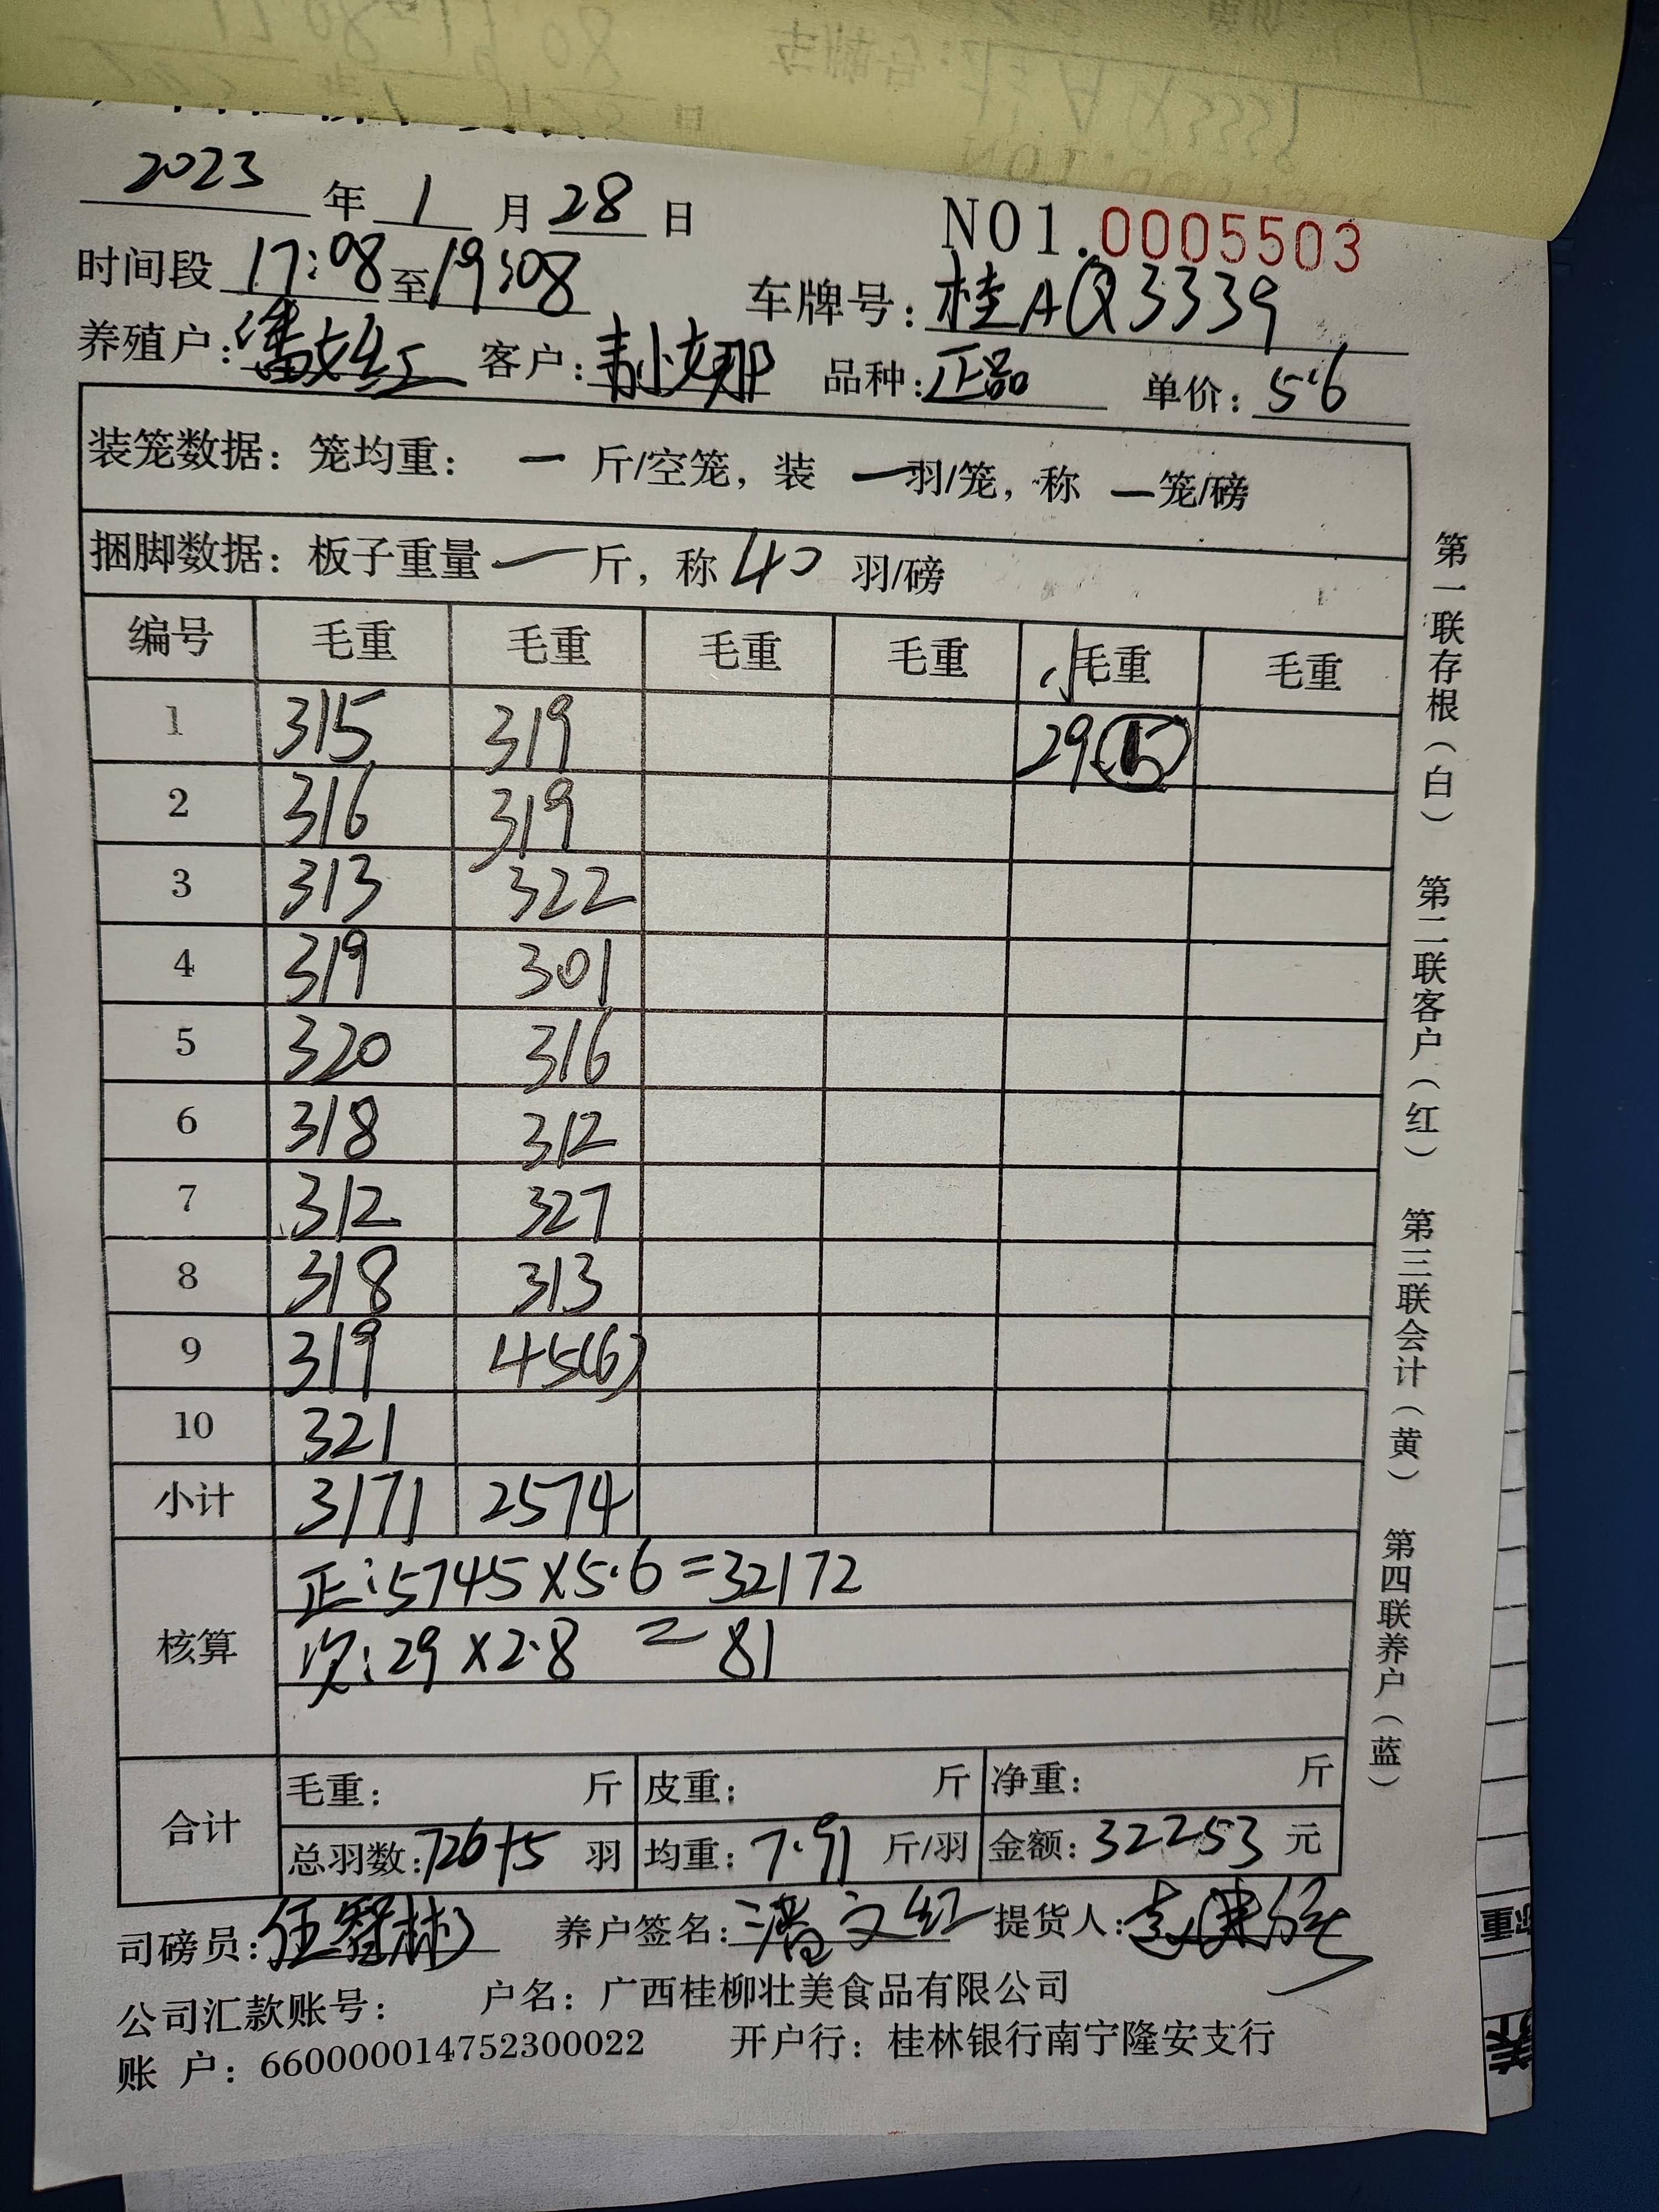 2023 年 1 月 28 日
NO1.0005503
时间段 17:08 至 19:08 车牌号: 桂AQ3339
养殖户: 潘文红 客户: 品种: 正品 单价: 5.6
装笼数据: 笼均重: 一 斤/空笼, 装 一 羽/笼, 称 一 笼/磅
捆脚数据: 板子重量 一 斤, 称 40 羽/磅
编号 毛重 毛重 毛重 毛重 毛重 毛重
1 315 319 29(5)
2 316 319
3 313 322
4 319 301
5 320 316
6 318 312
7 312 327
8 318 313
9 319 45(6)
10 321
小计 3171 2574
核算
正:5745×5.6=32172
次:29×2.8=81
合计
毛重: 斤 皮重: 斤 净重: 斤
总羽数:726+5 羽 均重: 7.91 斤/羽 金额: 32253 元
司磅员: 伍 彬 养户签名: 潘文红 提货人:
公司汇款账号: 户名: 广西桂柳壮美食品有限公司
账 户: 660000014752300022 开户行: 桂林银行南宁隆安支行
第一联存根(白) 第二联客户(红) 第三联会计(黄) 第四联养户(蓝)